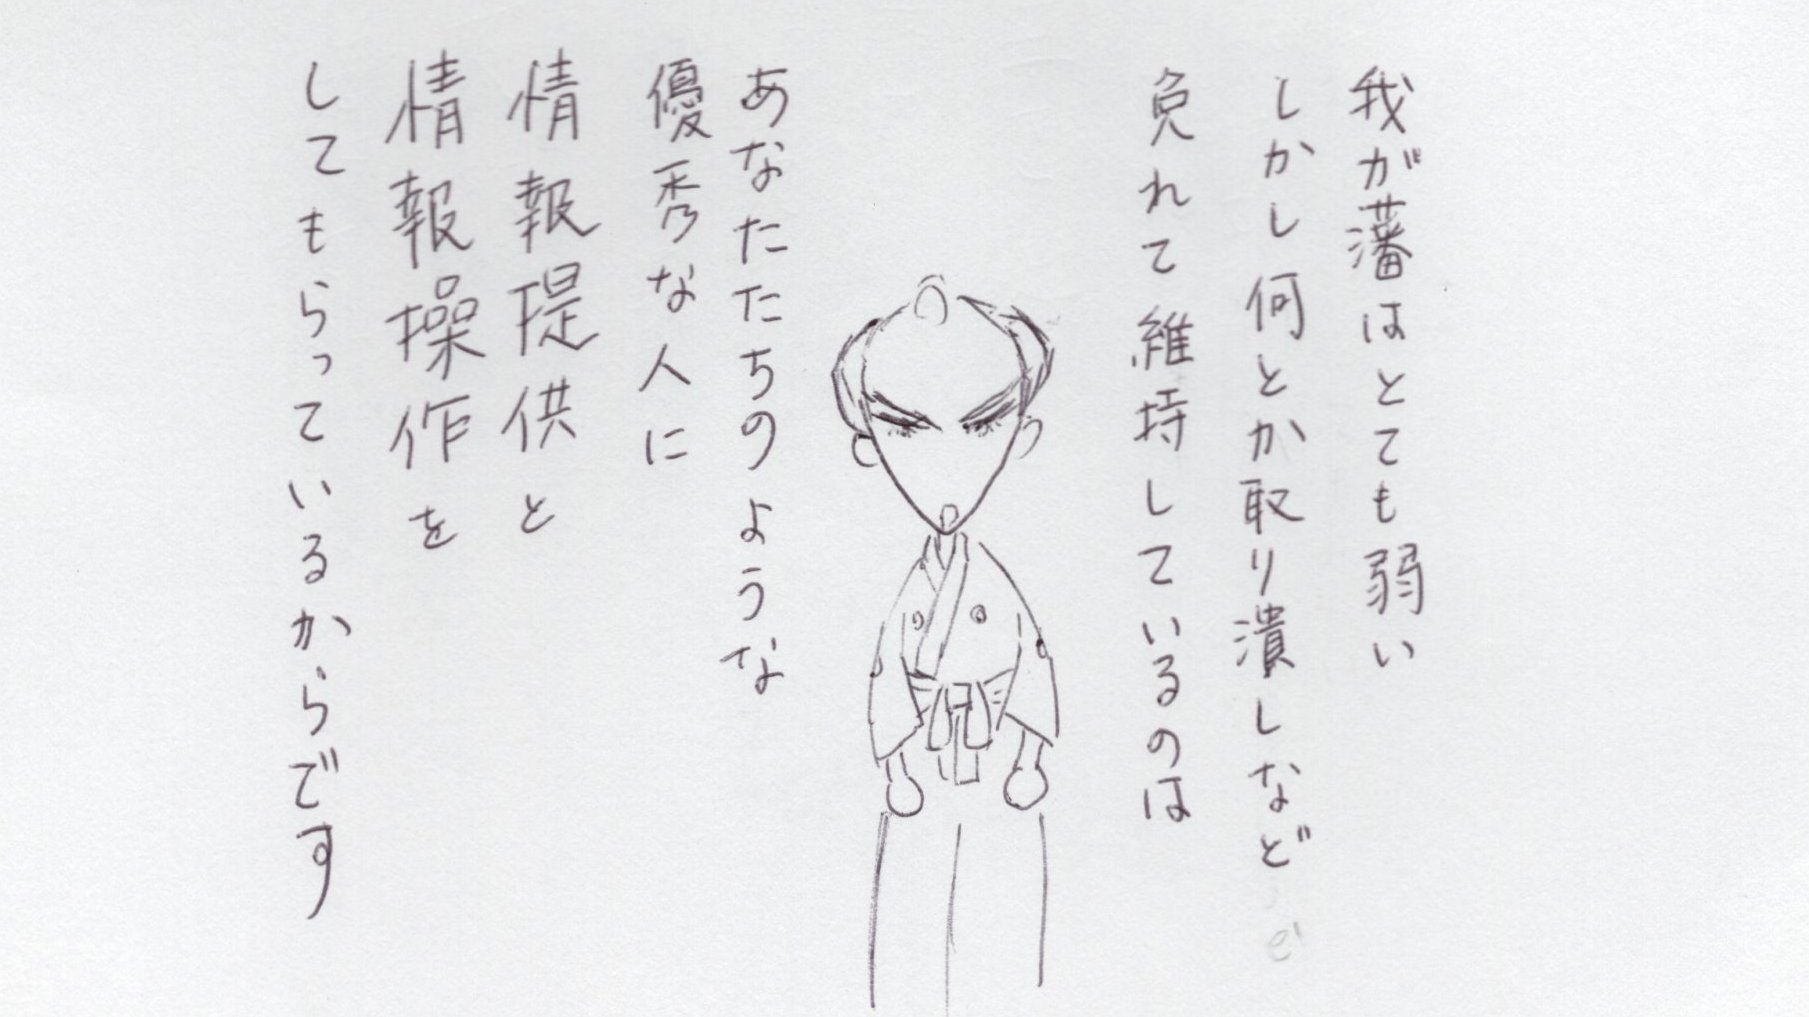 我が藩はとても弱い
しかし何とか取り潰しなど
免れて維持しているのは
あなたたちのような
優秀な人に
情報提供と
情報操作を
してもらっているからです